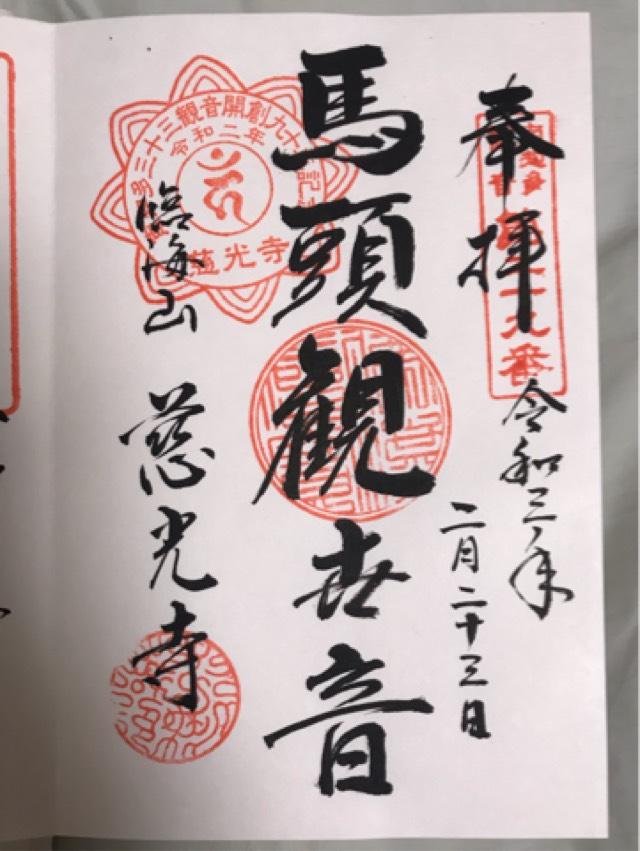 奉拝
九番
令和三年
二月二十三日
馬頭観世音
三十三觀音開創九十
令和二年
慈光寺
臨海山 慈光寺